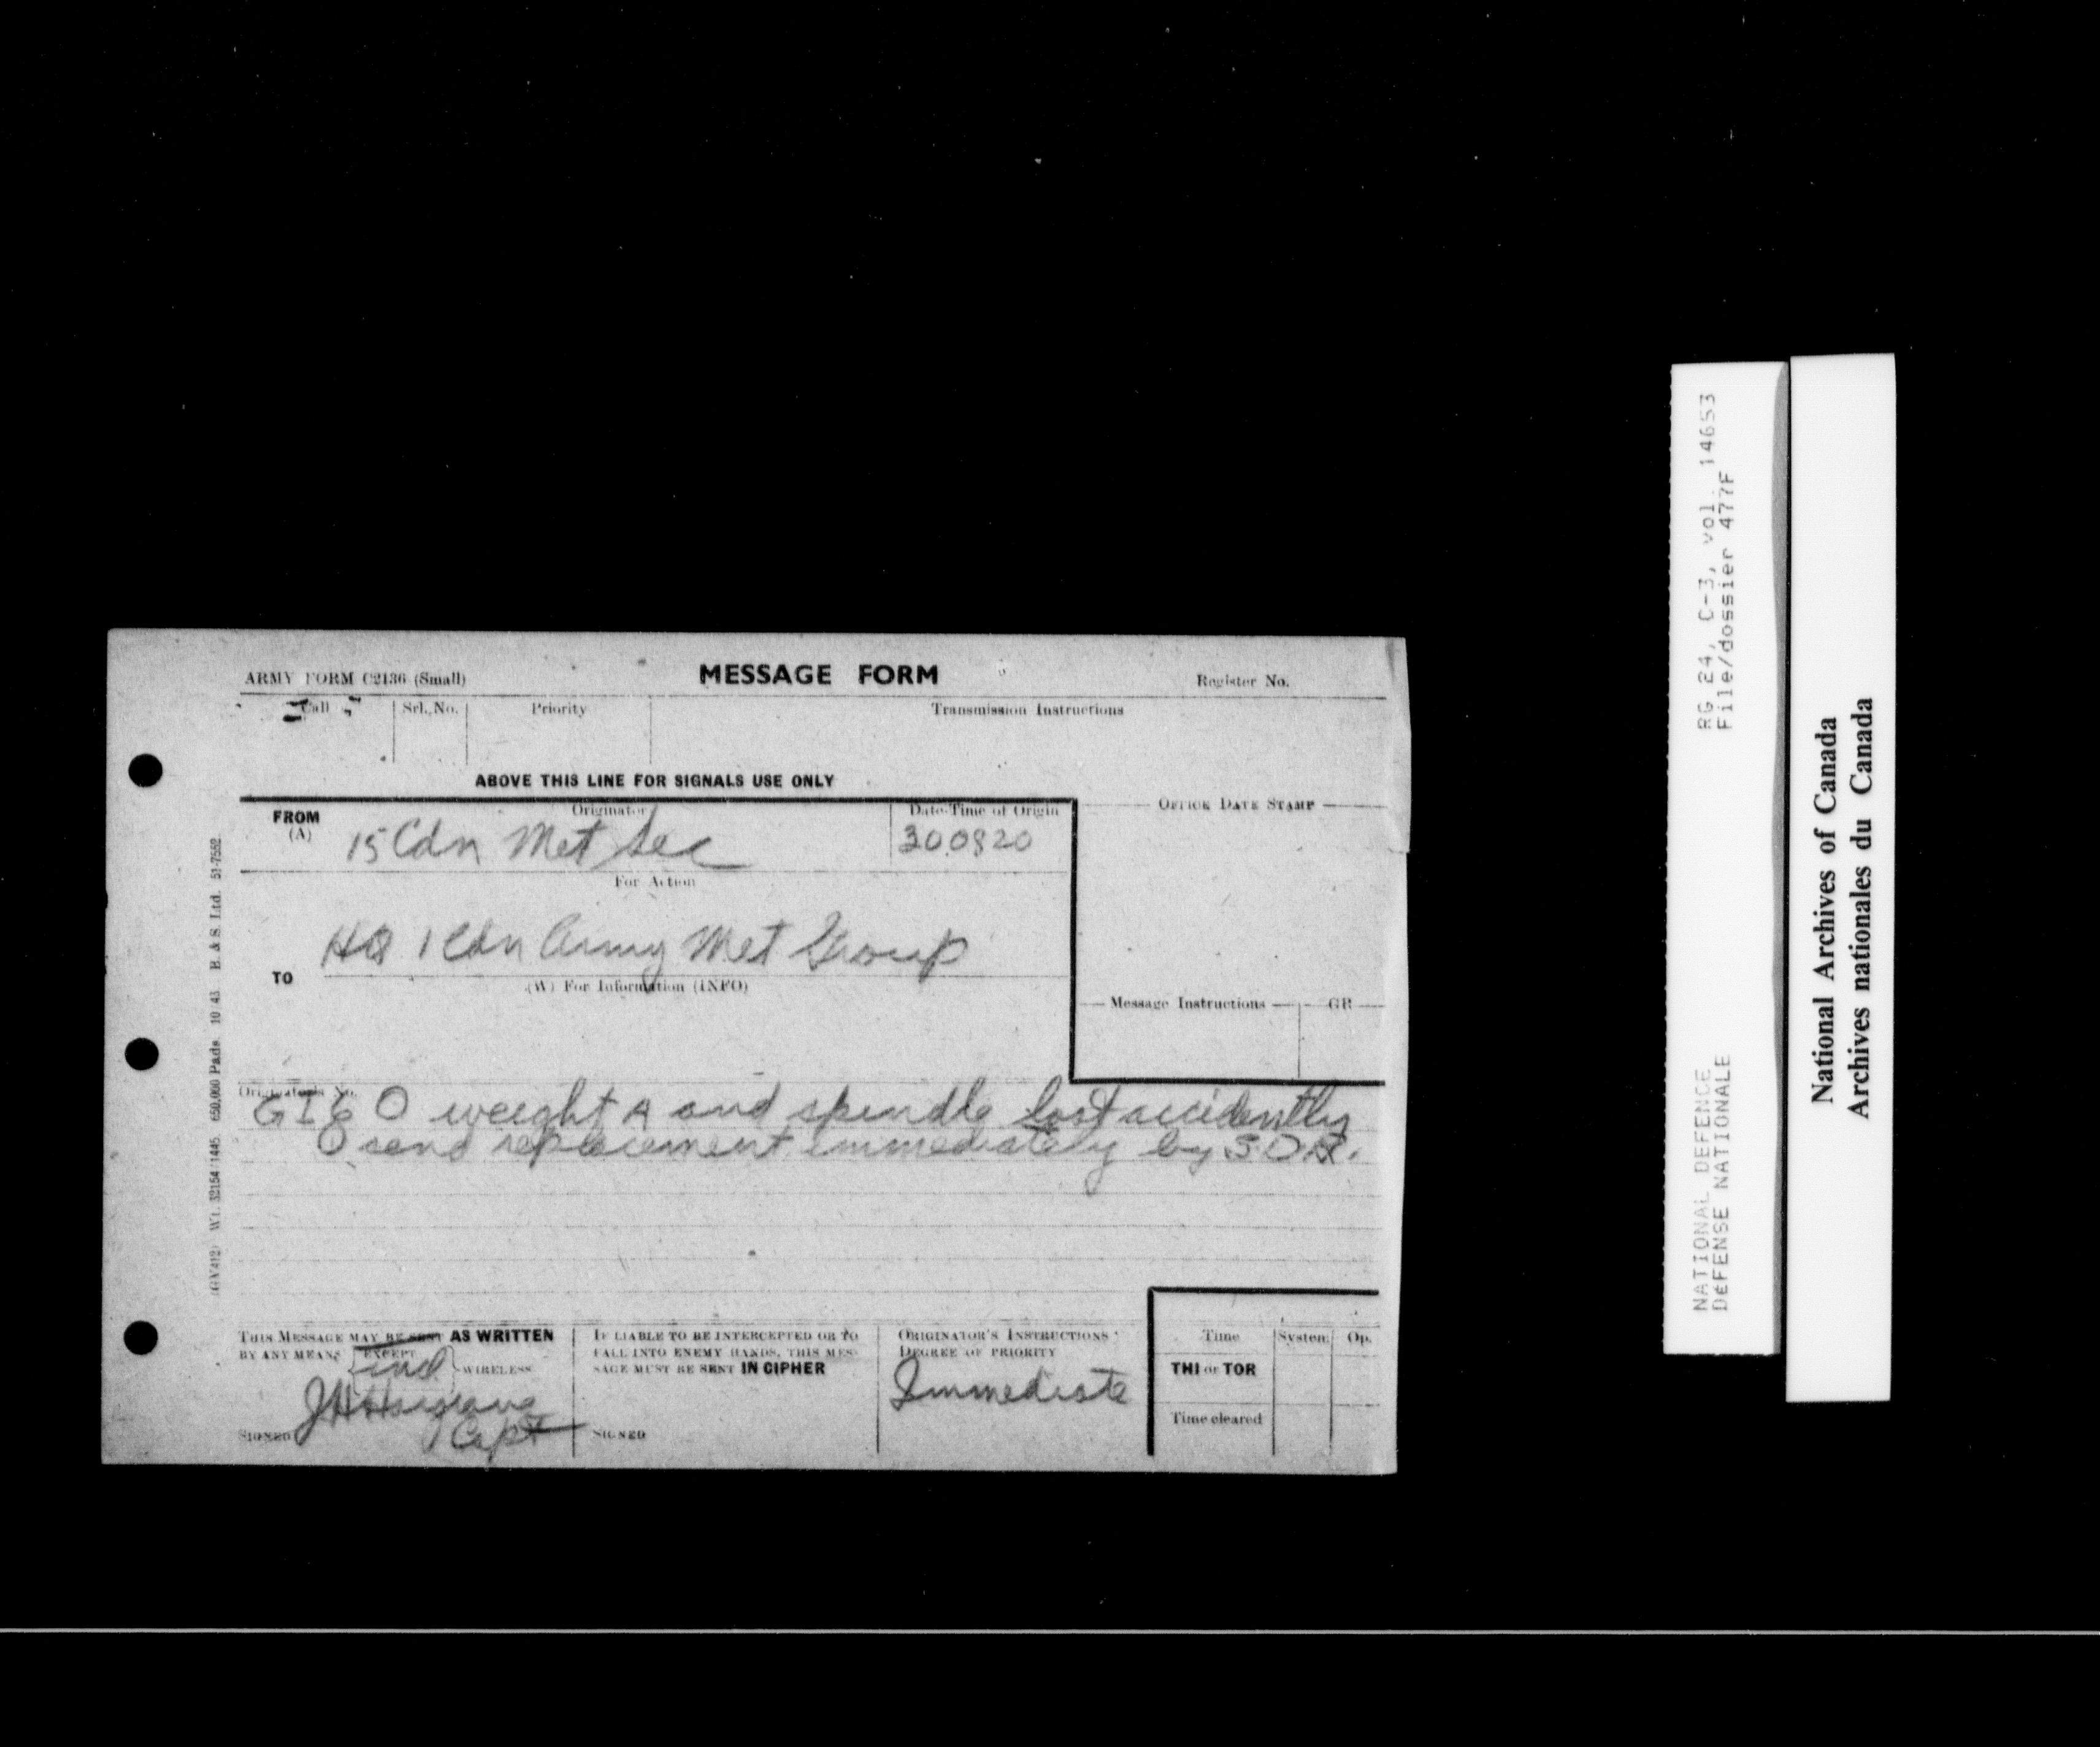 ARMY FORM C2136 (Small)
MESSAGE FORM
Register No.
Call
Srl. No.
Priority
Transmission Instructions
ABOVE THIS LINE FOR SIGNALS USE ONLY
FROM
(A)
Originator
15 Cdn Met Sec
Date-Time of Origin
300820
OFFICE DATE STAMP
For Action
HQ 1 Cdn Army Met Group
TO
(W) For Information (INFO)
Message Instructions
GR
Originator's No.
O weight A and spindle lost accidently
O send replacement immediately by
THIS MESSAGE MAY BE SENT AS WRITTEN
BY ANY MEANS
EXCEPT
WIRELESS
Capt
SIGNED
IF LIABLE TO BE INTERCEPTED OR TO
FALL INTO ENEMY HANDS, THIS MES-
SAGE MUST BE SENT IN CIPHER
SIGNED
ORIGINATOR'S INSTRUCTIONS
DEGREE OF PRIORITY
Immediate
Time
System
Op.
THI or TOR
Time cleared
(GV412) Wt. 32154/1445. 650,000 Pads. 10 43 B. & S. Ltd. 51-7552
RG 24, C-3, vol. 14653
File/dossier 477F
NATIONAL DEFENCE
DÉFENSE NATIONALE
National Archives of Canada
Archives nationales du Canada